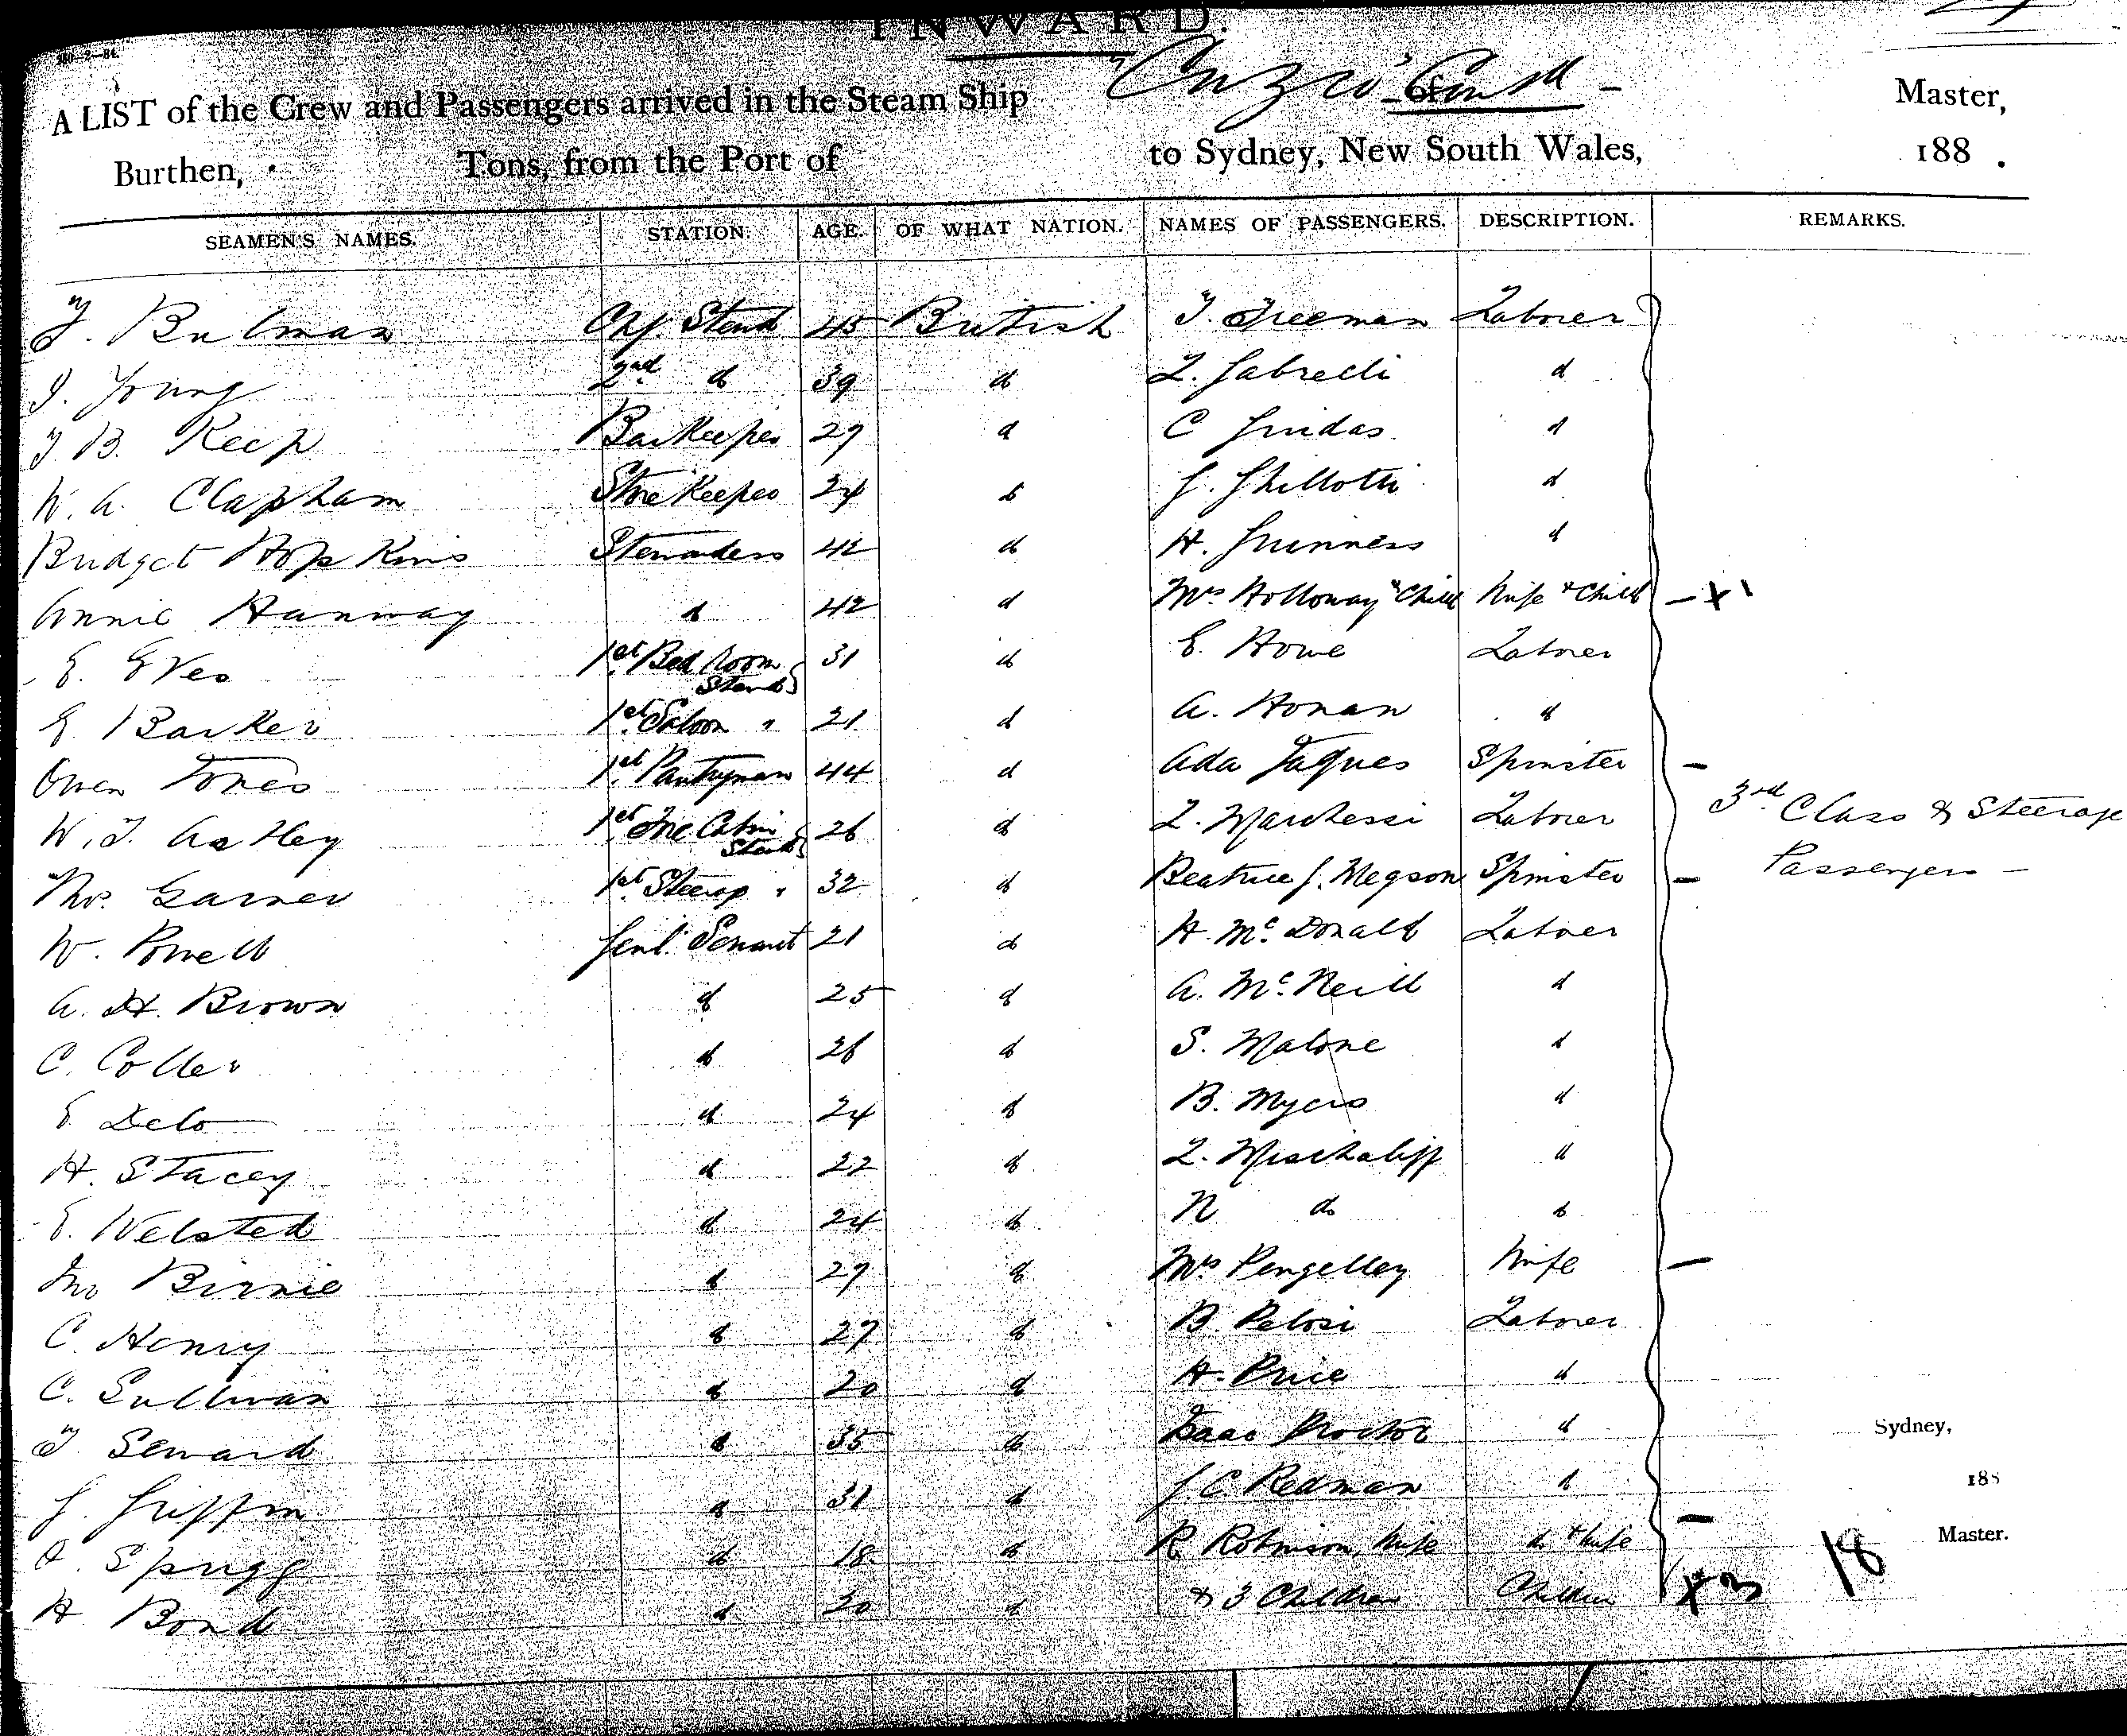 INWARD.
A LIST of the Crew and Passengers arrived in the Steam Ship "Cuzco" Cont'd - of Master,
Burthen, Tons, from the Port of to Sydney, New South Wales, 188 .
SEAMEN'S NAMES. STATION AGE. OF WHAT NATION. NAMES OF PASSENGERS. DESCRIPTION. REMARKS.
T. Bulman Chf. Stewd 45 British T. Freeman Laborer
J. Young 2nd do 39 do L. Gabredi do
T B. Keep Barkeeper 27 do C Grudas do
W. A. Clapham Storekeeper 24 do G. Ghillotti do
Bridget Hopkins Stewardess 42 do H. Guinness do
Annie Hanway do 42 do Mrs Holloway & Child Wife & Child - x 1
E. Eves 1st Bed Room Stewd 31 do E. Howe Laborer
E. Barker 1st Saloon " 21 do A. Honan do
Owen Jones 1st Pantryman 44 do Ada Jaques Spinster -
W. T. Astley 1st Fre Cabin Stewd 26 do L. Marchessi Laborer 3rd Class & Steerage
Thos. Garner 1st Steerage " 32 do Beatrice J. Megson Spinster - Passengers -
W. Powell Genl. Servant 21 do H. McDonald Laborer
A. H. Brown do 25 do A. McNeill do
C. Coller do 26 do S. Malone do
E Delo do 24 do B. Myers do
H. Stacey do 22 do L. Mischaliff do
E. Welsted do 24 do N do do
Jno Birnie do 27 do Mrs Pengelley Wife -
C. Henry do 27 do B Pelosi Laborer
C. Sullivan do 20 do H. Price do
T Seward do 35 do Isaac Proctor do Sydney,
G. Griffin do 31 do J. C. Redman do 188
Spragg do 18 do R. Robinson, Wife do & Wife - 18 Master.
H Bond do 20 do & 3 Children Children x 3